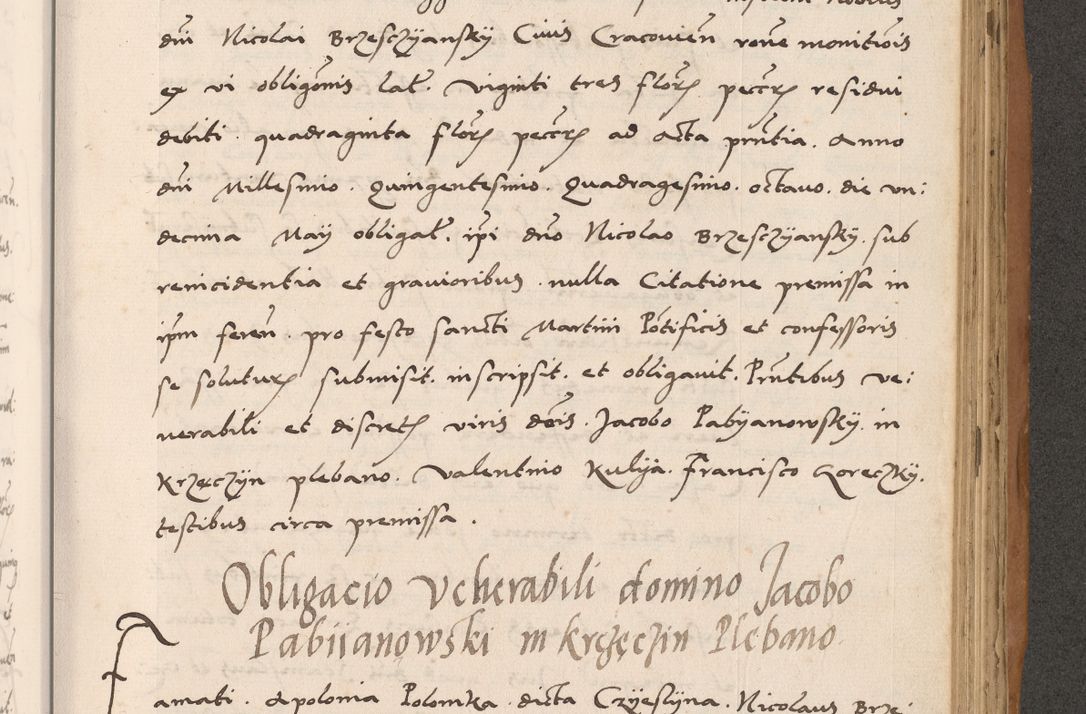 dni Nicolai Brzesczyansky Civis Cracovien rone monitiois
ex vi obligonis lat. viginti tres floroꝝ peccꝝ residui
debiti. quadraginta floroꝝ peccꝝ ad acta pntia. Anno
dni Millesimo. Quingentesimo. Quadragesimo. octavo. die un:
decima Maÿ obligat. ipi dno Nicolao Brzesczyansky. sub
reincidentia et gravioribus. nulla Citatione premissa in
ipm feren. pro festo sancti Martini Potificis et confessoris
se soluturꝝ submisit. inscripsit. et obligavit. Pntibus ve:
nerabili et discretꝝ viris dois. Jacobo Pabyanowsky. in
Krzęczÿn plebano. Valentino Kulÿa. Francisco Goreczkÿ.
testibus circa premissa.
Obligacio Venerabili domino Jacobo
Pabiianowski in Krzęczin Plebano
Famati. Apolonia Polonka. dicta Czÿeslÿna. Nicolaus Brze: